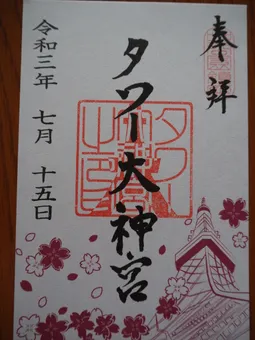 奉拝
タワー大神宮
令和三年 七月 十五日